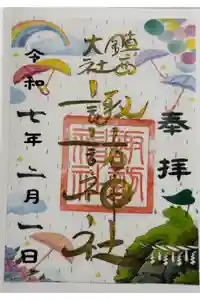 奉拝
鎮西
大社
諏訪神社
令和七年六月一日